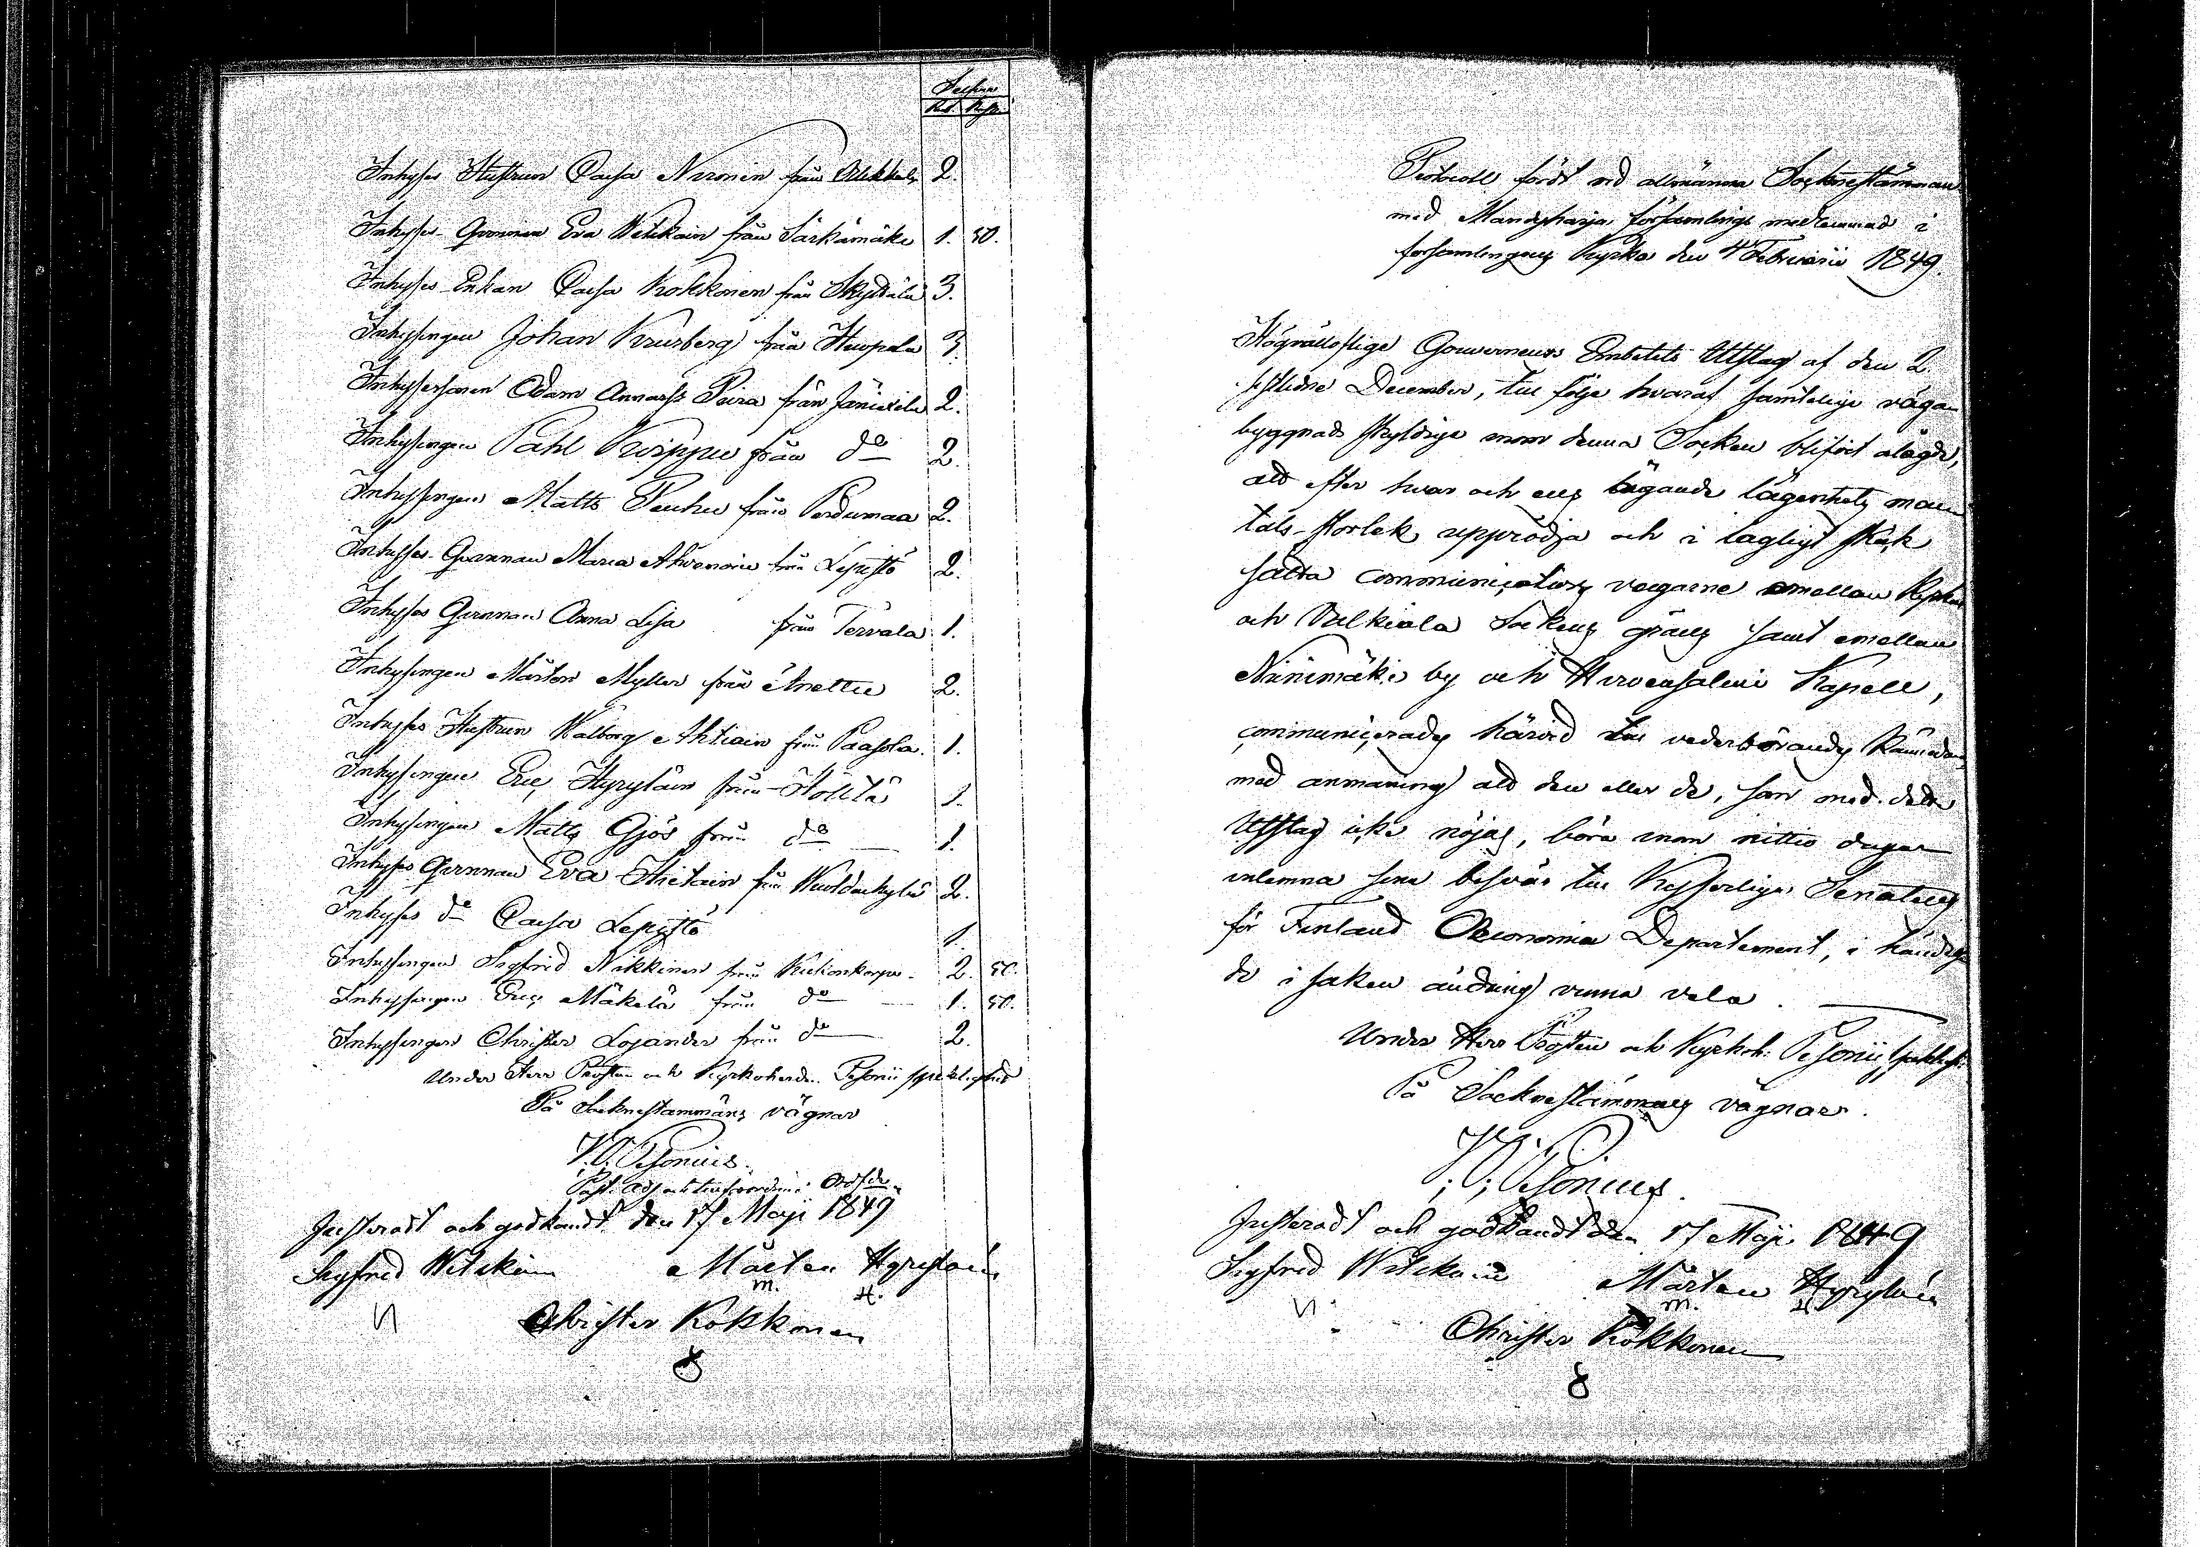 Silfver
Rub. Kop.
Inhyses Hustrun Caisa Nironen från Ollikkala 2.
Inhyses Qvinnan Eva Witikain från Särkämäki 1. 50.
Inhyses Enkan Caisa Kokkonen från Skyttälä 3.
Inhysingen Johan Kruusberg från Huopola 3.
Inhysessonen Adam Annanss Poira från Jänickälä 2.
Inhysingen Påhl Koippu från do 2.
Inhysingen Matts Peuhu från Pordumaa 2.
Inhyses Qvinnan Maria Ahvenain från Lepistö 2.
Inhyses Qvinnan Anna Lisa från Tervala 1.
Inhysingen Mårten Myller från Anettu 2.
Inhyses Hustrun Walborg Ahtiain från Paasola 1.
Inhysingen Eric Hyryläin från Hölttä 1.
Inhysingen Matts Gjös från do 1.
Inhyses Qvinnan Eva Hietain från 2.
Inhyses do Caisa Lepistö 1.
Inhysingen Sigfrid Nikkinen från 2. 50.
Inhysingen Eric Mäkelä från do 1. 50.
Inhysingen Christer Lojander från do 2.
Under Herr Prosten och Kyrkoherden Pesonii
På Socknestämmans vägnar
J. J. Pesonius.
Past. adj. och ordf.
Justeradt och godkändt den 17 Maji 1849
Sigfrid Witikain Mårten Hyryläin
M. H.
Christer Kokkonen
Protocoll fördt vid allmänna Socknestämman
med Mandyharju församlings medlemmar i
församlingens Kyrka den 4 Februarii 1849.
Högvälloflige Gouverneurs Embetets Utslag af den 2
sistlidne December, till följe hvaraf samtelige vägar
byggnads skyldige inom denna Socken blifvit ålagde,
att efter hvar och ens ägande lägenhets man
tals storlek upprödja och i lagligt skick
sätta communications vägarne emellan Kyrkan
och Valkiala Sockens gräns samt emellan
Niinimäki by och Hirvensalmi Kapell,
communicerades härvid till vederbörandes kännedom
med anmaning att den eller de, som med detta
Utslag icke nöjas, böra inom nittio dagar
inlemna sina besvär till Kejserliga Senatens
för Finland Oeconomie Departement, i händelse
de i saken ändring vinna vela.
Under Herr Prosten och Kyrkoh: Pesonii
På Socknestämmans vägnar.
J. J. Pesonius.
Justeradt och godkändt den 17 Maji 1849
Sigfrid Witikain Mårten Hyryläin
M. H.
Christer Kokkonen